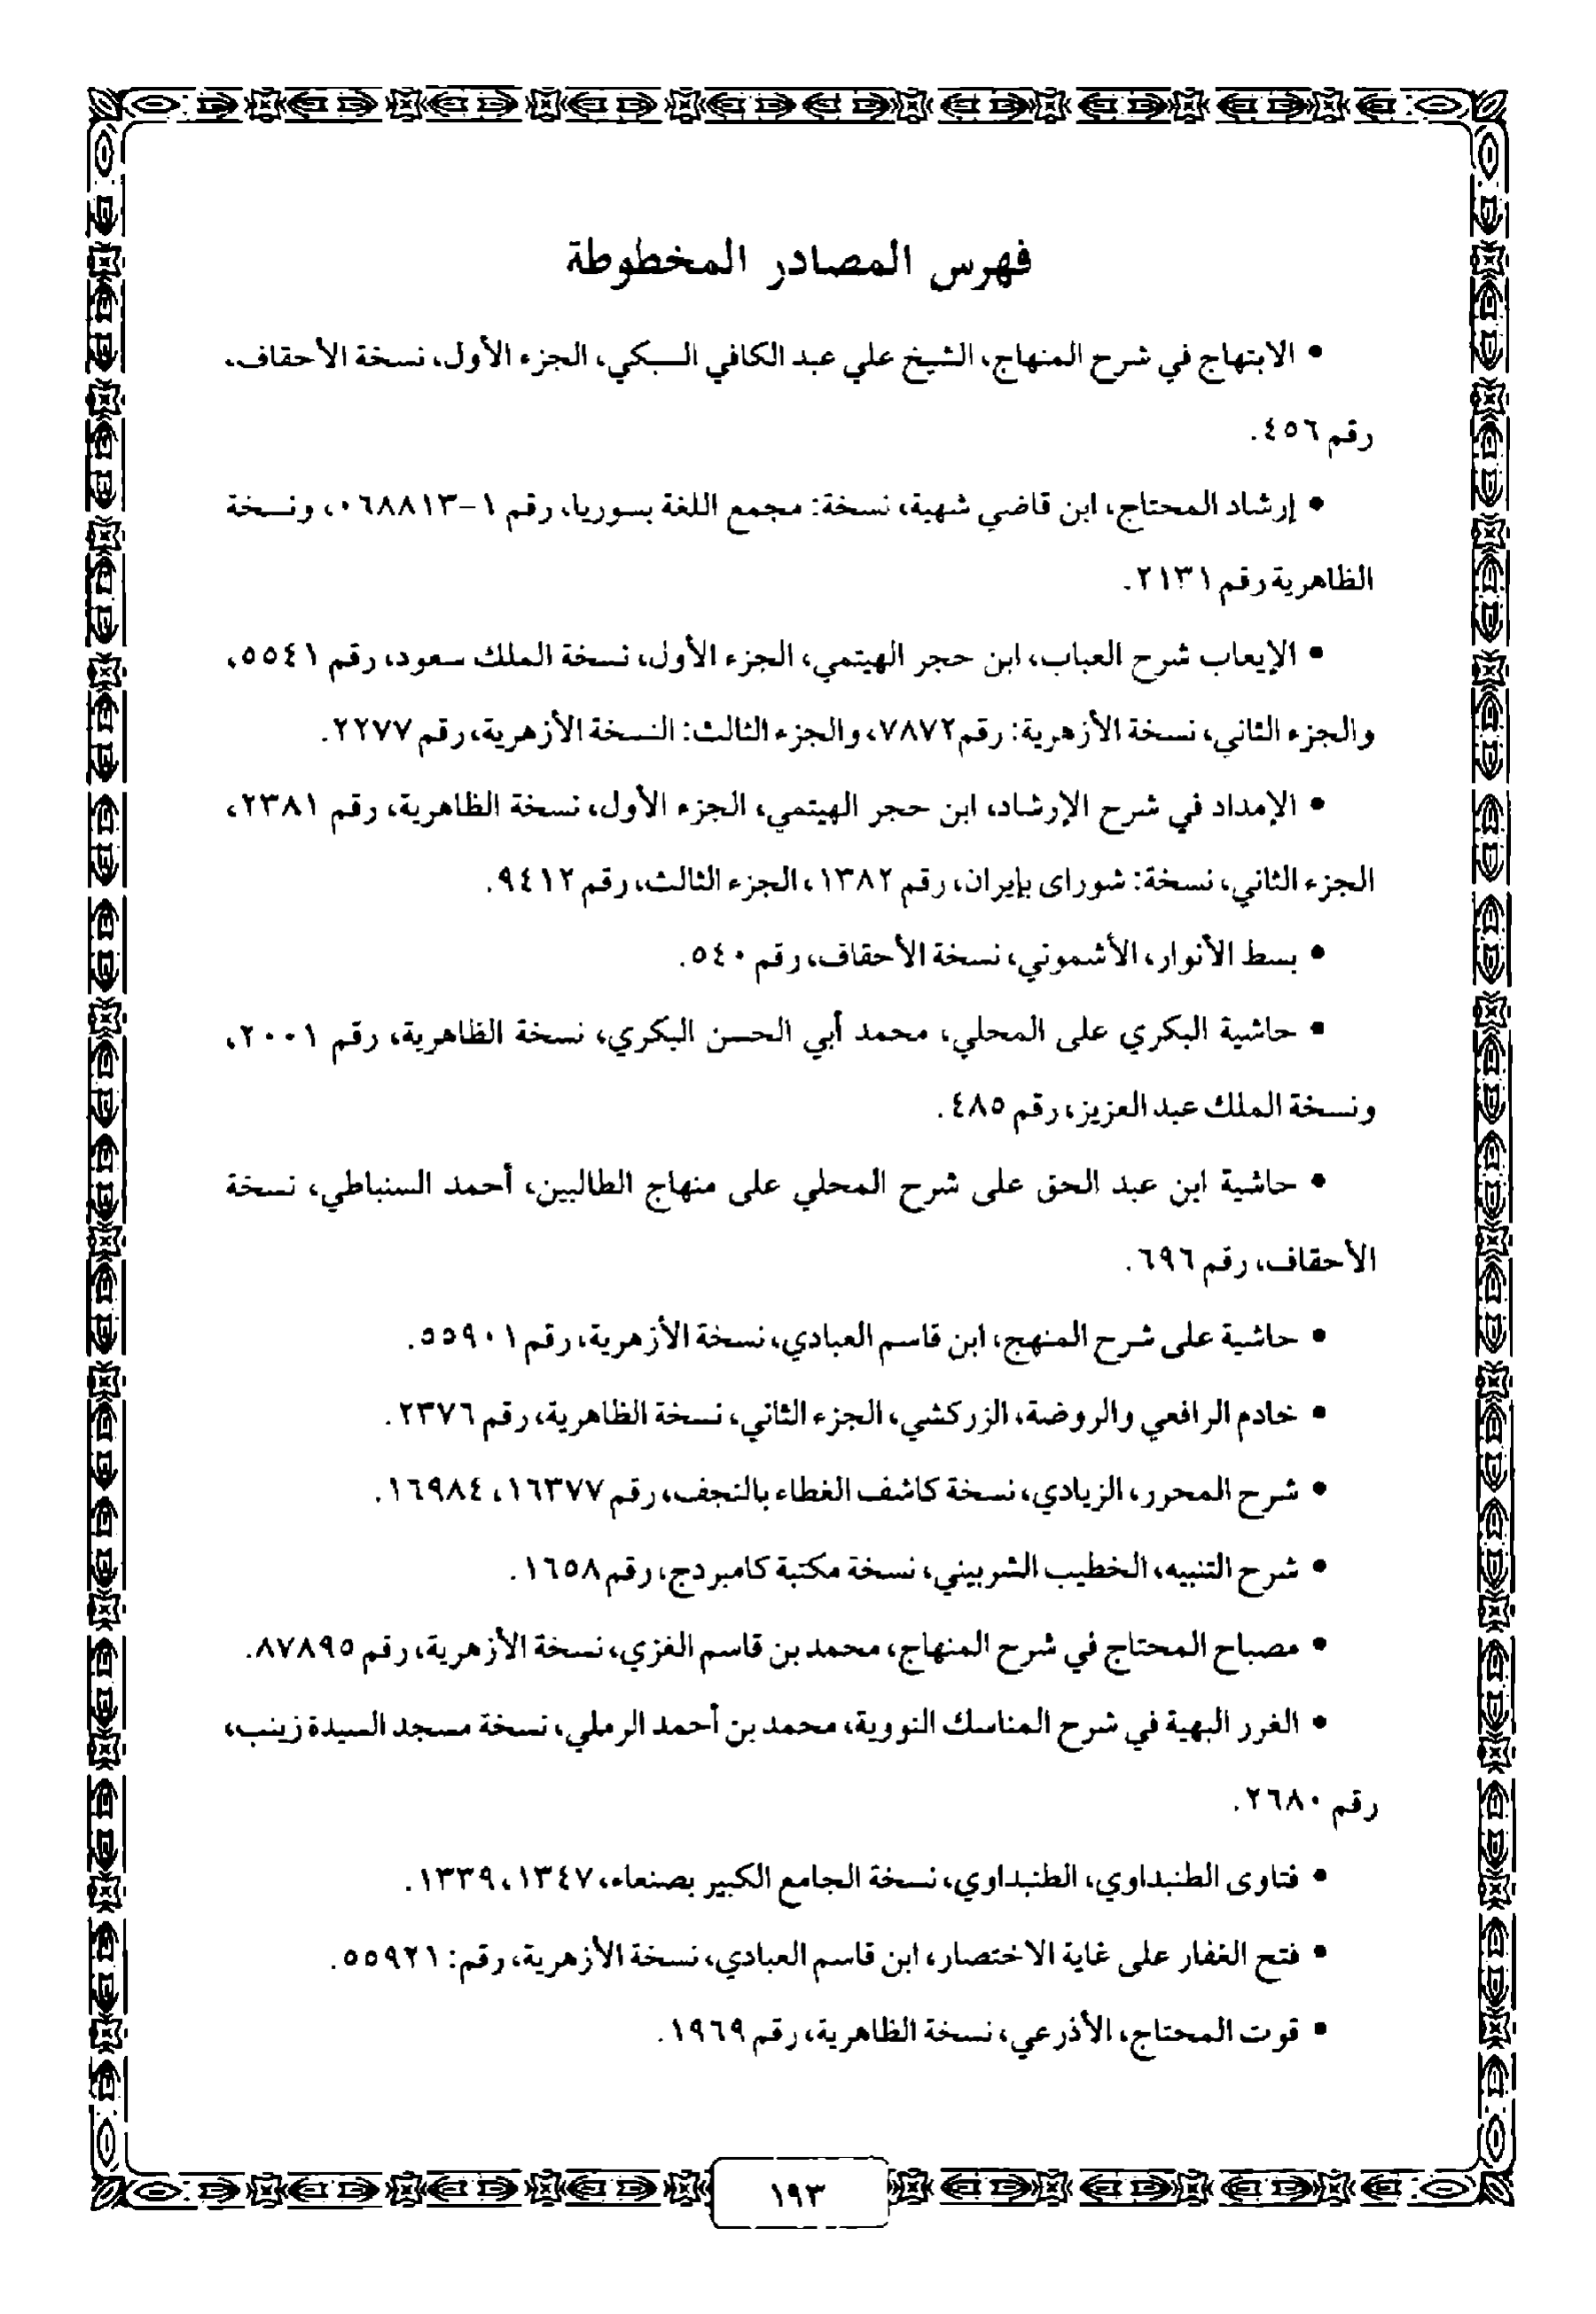 فهرس المصادر المخطوطة
• الابتهاج في شرح المنهاج، الشيخ علي عبد الكافي السبكي، الجزء الأول، نسخة الأحقاف،
رقم ٤٥٦.
• إرشاد المحتاج، ابن قاضي شهبة، نسخة: مجمع اللغة بسوريا، رقم ١-٠٦٨٨١٣، ونسخة
الظاهرية رقم ٢١٣١.
• الإيعاب شرح العباب، ابن حجر الهيتمي، الجزء الأول، نسخة الملك سعود، رقم ٥٥٤١،
والجزء الثاني، نسخة الأزهرية: رقم ٧٨٧٢، والجزء الثالث: النسخة الأزهرية، رقم ٢٢٧٧.
• الإمداد في شرح الإرشاد، ابن حجر الهيتمي، الجزء الأول، نسخة الظاهرية، رقم ٢٣٨١،
الجزء الثاني، نسخة: شوراى بإيران، رقم ١٣٨٢، الجزء الثالث، رقم ٩٤١٢.
• بسط الأنوار، الأشموني، نسخة الأحقاف، رقم ٥٤٠.
• حاشية البكري على المحلي، محمد أبي الحسن البكري، نسخة الظاهرية، رقم ٢٠٠١،
ونسخة الملك عبد العزيز، رقم ٤٨٥.
• حاشية ابن عبد الحق على شرح المحلي على منهاج الطالبين، أحمد السنباطي، نسخة
الأحقاف، رقم ٦٩٦.
• حاشية على شرح المنهج، ابن قاسم العبادي، نسخة الأزهرية، رقم ٥٥٩٠١.
• خادم الرافعي والروضة، الزركشي، الجزء الثاني، نسخة الظاهرية، رقم ٢٣٧٦.
• شرح المحرر، الزيادي، نسخة كاشف الغطاء بالنجف، رقم ١٦٣٧٧، ١٦٩٨٤.
• شرح التنبيه، الخطيب الشربيني، نسخة مكتبة كامبردج، رقم ١٦٥٨.
• مصباح المحتاج في شرح المنهاج، محمد بن قاسم الغزي، نسخة الأزهرية، رقم ٨٧٨٩٥.
• الغرر البهية في شرح المناسك النووية، محمد بن أحمد الرملي، نسخة مسجد السيدة زينب،
رقم ٢٦٨٠.
• فتاوى الطنبداوي، الطنبداوي، نسخة الجامع الكبير بصنعاء، ١٣٤٧، ١٣٣٩.
• فتح الغفار على غاية الاختصار، ابن قاسم العبادي، نسخة الأزهرية، رقم: ٥٥٩٢١.
• قوت المحتاج، الأذرعي، نسخة الظاهرية، رقم ١٩٦٩.
١٩٣